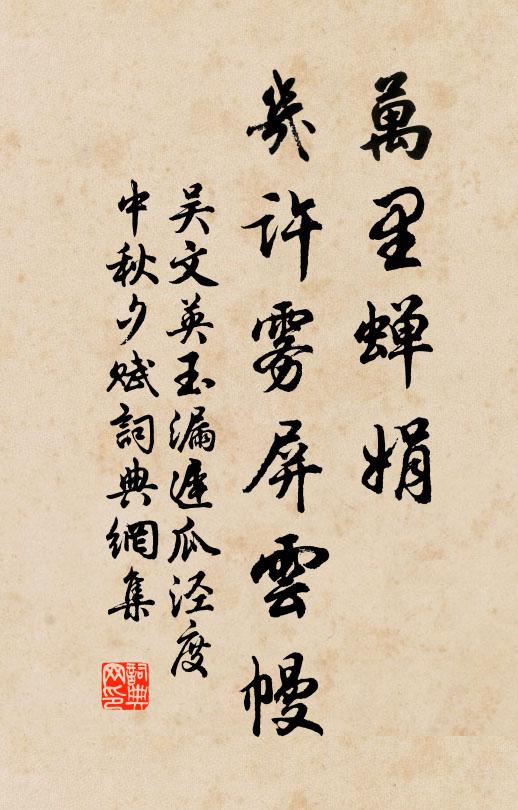 萬里蝉娟
幾许雾屏雲幔
吴文英玉漏遲瓜泾度
中秋夕赋詞典網集
詞典
网印